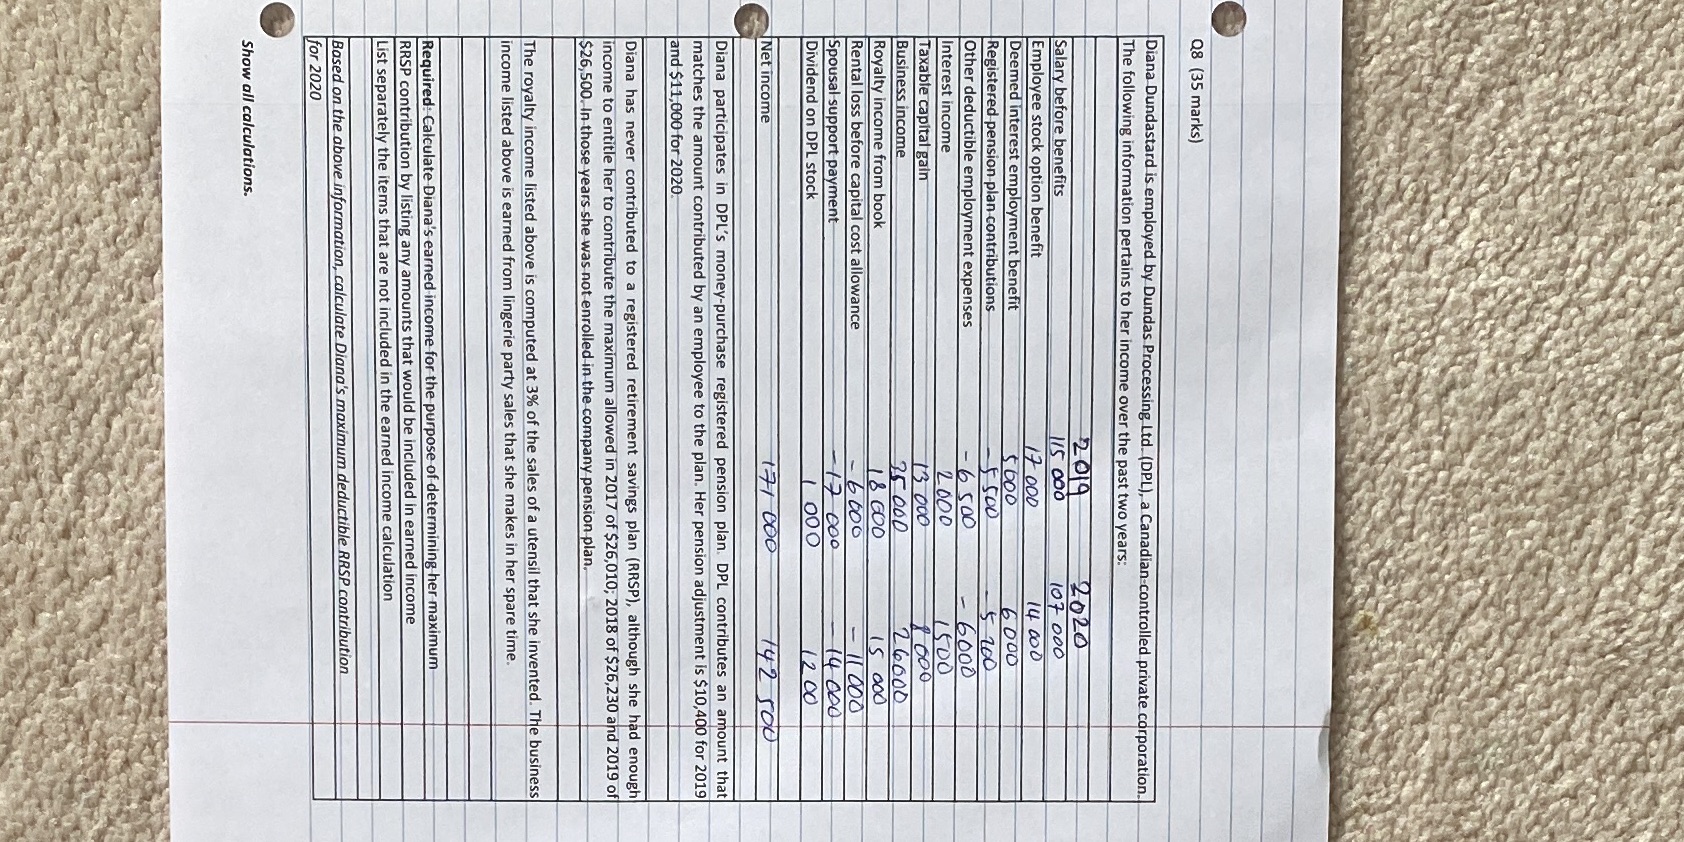 Q8 (35 marks)
Diana Dundastard is employed by Dundas Processing Ltd. (DPL), a Canadian-controlled private corporation.
The following information pertains to her income over the past two years:
2019 2020
Salary before benefits 115 000 107 000
Employee stock option benefit 17 000 14 000
Deemed interest employment benefit 5 000 6 000
Registered pension plan contributions - 5 500 - 5 200
Other deductible employment expenses - 6 500 - 6000
Interest income 2 000 1500
Taxable capital gain 13 000 8 000
Business income 35 000 26000
Royalty income from book 18 000 15 000
Rental loss before capital cost allowance - 6 000 - 11 000
Spousal support payment - 17 000 - 14 000
Dividend on DPL stock 1 000 1200
Net income 171 000 142 500
Diana participates in DPL's money-purchase registered pension plan. DPL contributes an amount that
matches the amount contributed by an employee to the plan. Her pension adjustment is $10,400 for 2019
and $11,000 for 2020.
Diana has never contributed to a registered retirement savings plan (RRSP), although she had enough
income to entitle her to contribute the maximum allowed in 2017 of $26,010; 2018 of $26,230 and 2019 of
$26,500. In those years she was not enrolled in the company pension plan.
The royalty income listed above is computed at 3% of the sales of a utensil that she invented. The business
income listed above is earned from lingerie party sales that she makes in her spare time.
Required: Calculate Diana's earned income for the purpose of determining her maximum
RRSP contribution by listing any amounts that would be included in earned income
List separately the items that are not included in the earned income calculation
Based on the above information, calculate Diana's maximum deductible RRSP contribution
for 2020
Show all calculations.